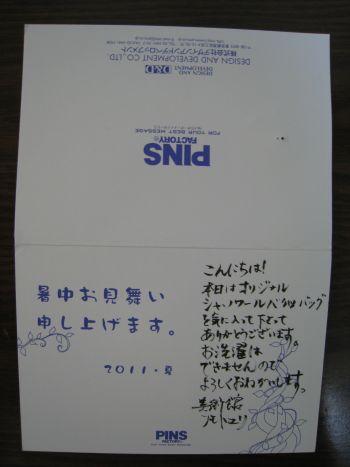 DESIGN AND DEVELOPMENT CO., LTD.
株式会社デザインアンドデベロップメント
D&D
DESIGN AND
DEVELOPMENT
PINS
FACTORY
FOR YOUR BEST MESSAGE
暑中お見舞い
申し上げます。
2011・夏
こんにちは!
本日はオリジナル
シャ・ノワール
バッグ
を気に入って下さって
ありがとうございます。
お洗濯は
できませんので
よろしくおねがいします。
美術館
PINS
FACTORY